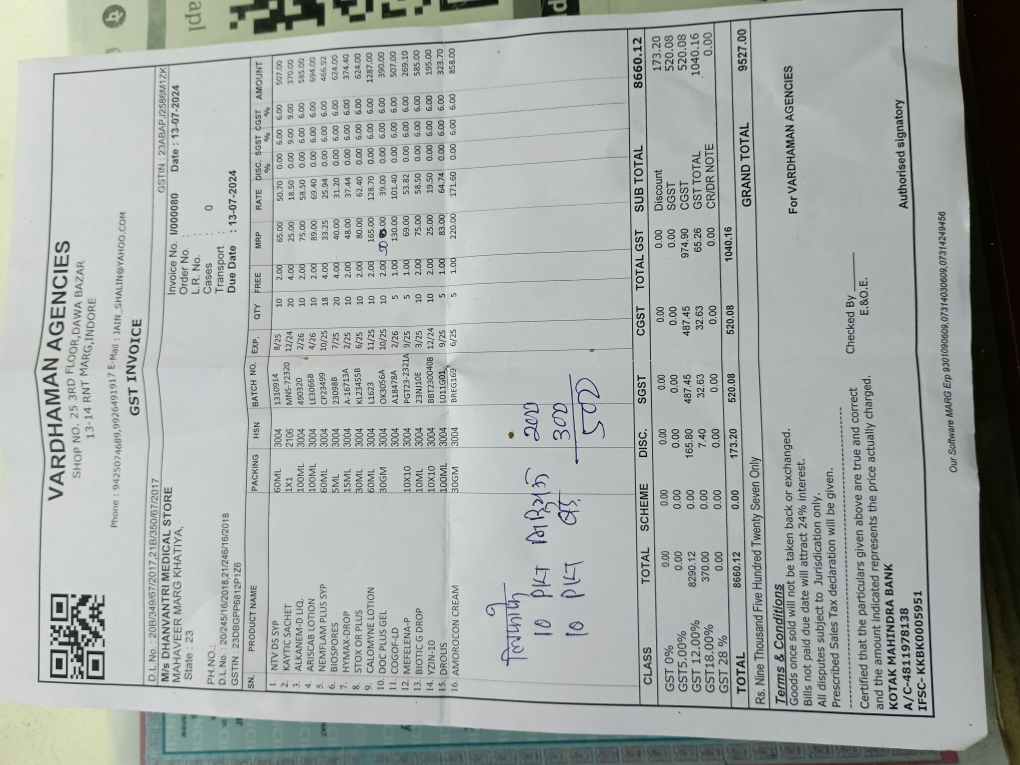 VARDHAMAN AGENCIES
SHOP NO. 25 3RD FLOOR,DAWA BAZAR
13-14 RNT MARG,INDORE
Phone : 9425074689,9926491917 E-Mail : JAIN_SHALIN@YAHOO.COM
GST INVOICE
D.L.No. : 20B/349/67/2017,21B/350/67/2017
GSTIN : 23ABAPJ2586M1ZK
M/s DHANVANTRI MEDICAL STORE
MAHAVEER MARG KHATIYA,
State : 23
PH.NO.:
D.L.No. : 20/245/16/2018,21/246/16/2018
GSTIN : 23DBGPP6812P1Z6
Invoice No. I/000080 Date : 13-07-2024
Order No. :
L.R. No. :
Cases : 0
Transport :
Due Date : 13-07-2024
SN. PRODUCT NAME PACKING HSN BATCH NO. EXP. QTY FREE MRP RATE DISC. % SGST % CGST % AMOUNT
1. NTV DS SYP 60ML 3004 1310914 8/25 10 2.00 65.00 50.70 0.00 6.00 6.00 507.00
2. KAYTIC SACHET 1X1 2106 MNS-72320 12/24 20 4.00 25.00 18.50 0.00 9.00 9.00 370.00
3. ALKANEM-D LIQ. 100ML 3004 490320 2/26 10 2.00 75.00 58.50 0.00 6.00 6.00 585.00
4. ARISCAB LOTION 100ML 3004 LE3066B 4/26 10 2.00 89.00 69.40 0.00 6.00 6.00 694.00
5. NEMFLAM PLUS SYP 60ML 3004 CP23499 10/25 18 4.00 33.25 25.94 0.00 6.00 6.00 466.92
6. BIOSPORES 5ML 3004 23098B 7/25 20 4.00 40.00 31.20 0.00 6.00 6.00 624.00
7. HYMAX-DROP 15ML 3004 A-16713A 2/25 10 2.00 48.00 37.44 0.00 6.00 6.00 374.40
8. STOX OR PLUS 30ML 3004 KL23455B 6/25 10 2.00 80.00 62.40 0.00 6.00 6.00 624.00
9. CALOMYNE LOTION 60ML 3004 L1623 11/25 10 2.00 165.00 128.70 0.00 6.00 6.00 1287.00
10. DOC PLUS GEL 30GM 3004 OK3056A 10/25 10 2.00 39.00 0.00 6.00 6.00 390.00
11. COGOF-LD 3004 A18478A 2/26 5 1.00 130.00 101.40 0.00 6.00 6.00 507.00
12. MEFELENA-P 10X10 3004 PGT23-2321A 9/25 5 1.00 69.00 53.82 0.00 6.00 6.00 269.10
13. BIOTIC G DROP 10ML 3004 23NU10E 3/25 10 2.00 75.00 58.50 0.00 6.00 6.00 585.00
14. YZIN-10 10X10 3004 BBT230040B 12/24 10 2.00 25.00 19.50 0.00 6.00 6.00 195.00
15. DROLIS 100ML 3004 L011G01 9/25 5 1.00 83.00 64.74 0.00 6.00 6.00 323.70
16. AMOROCON CREAM 30GM 3004 BREG169 6/25 5 1.00 220.00 171.60 0.00 6.00 6.00 858.00
10 PKT 200
10 PKT 300
500
CLASS TOTAL SCHEME DISC. SGST CGST TOTAL GST SUB TOTAL 8660.12
GST 0% 0.00 0.00 0.00 0.00 0.00 0.00 Discount 173.20
GST5.00% 0.00 0.00 0.00 0.00 0.00 0.00 SGST 520.08
GST 12.00% 8290.12 0.00 165.80 487.45 487.45 974.90 CGST 520.08
GST18.00% 370.00 0.00 7.40 32.63 32.63 65.26 GST TOTAL 1040.16
GST 28 % 0.00 0.00 0.00 0.00 0.00 0.00 CR/DR NOTE 0.00
TOTAL 8660.12 0.00 173.20 520.08 520.08 1040.16 GRAND TOTAL 9527.00
Rs. Nine Thousand Five Hundred Twenty Seven Only
Terms & Conditions
Goods once sold will not be taken back or exchanged.
Bills not paid due date will attract 24% interest.
All disputes subject to Jurisdication only.
Prescribed Sales Tax declaration will be given.
For VARDHAMAN AGENCIES
Certified that the particulars given above are true and correct
and the amount indicated represents the price actually charged.
Checked By
E.&O.E.
KOTAK MAHINDRA BANK
A/C-4811978138
IFSC- KKBK0005951
Authorised signatory
Our Software MARG Erp 9301090609,07314030609,07314249456